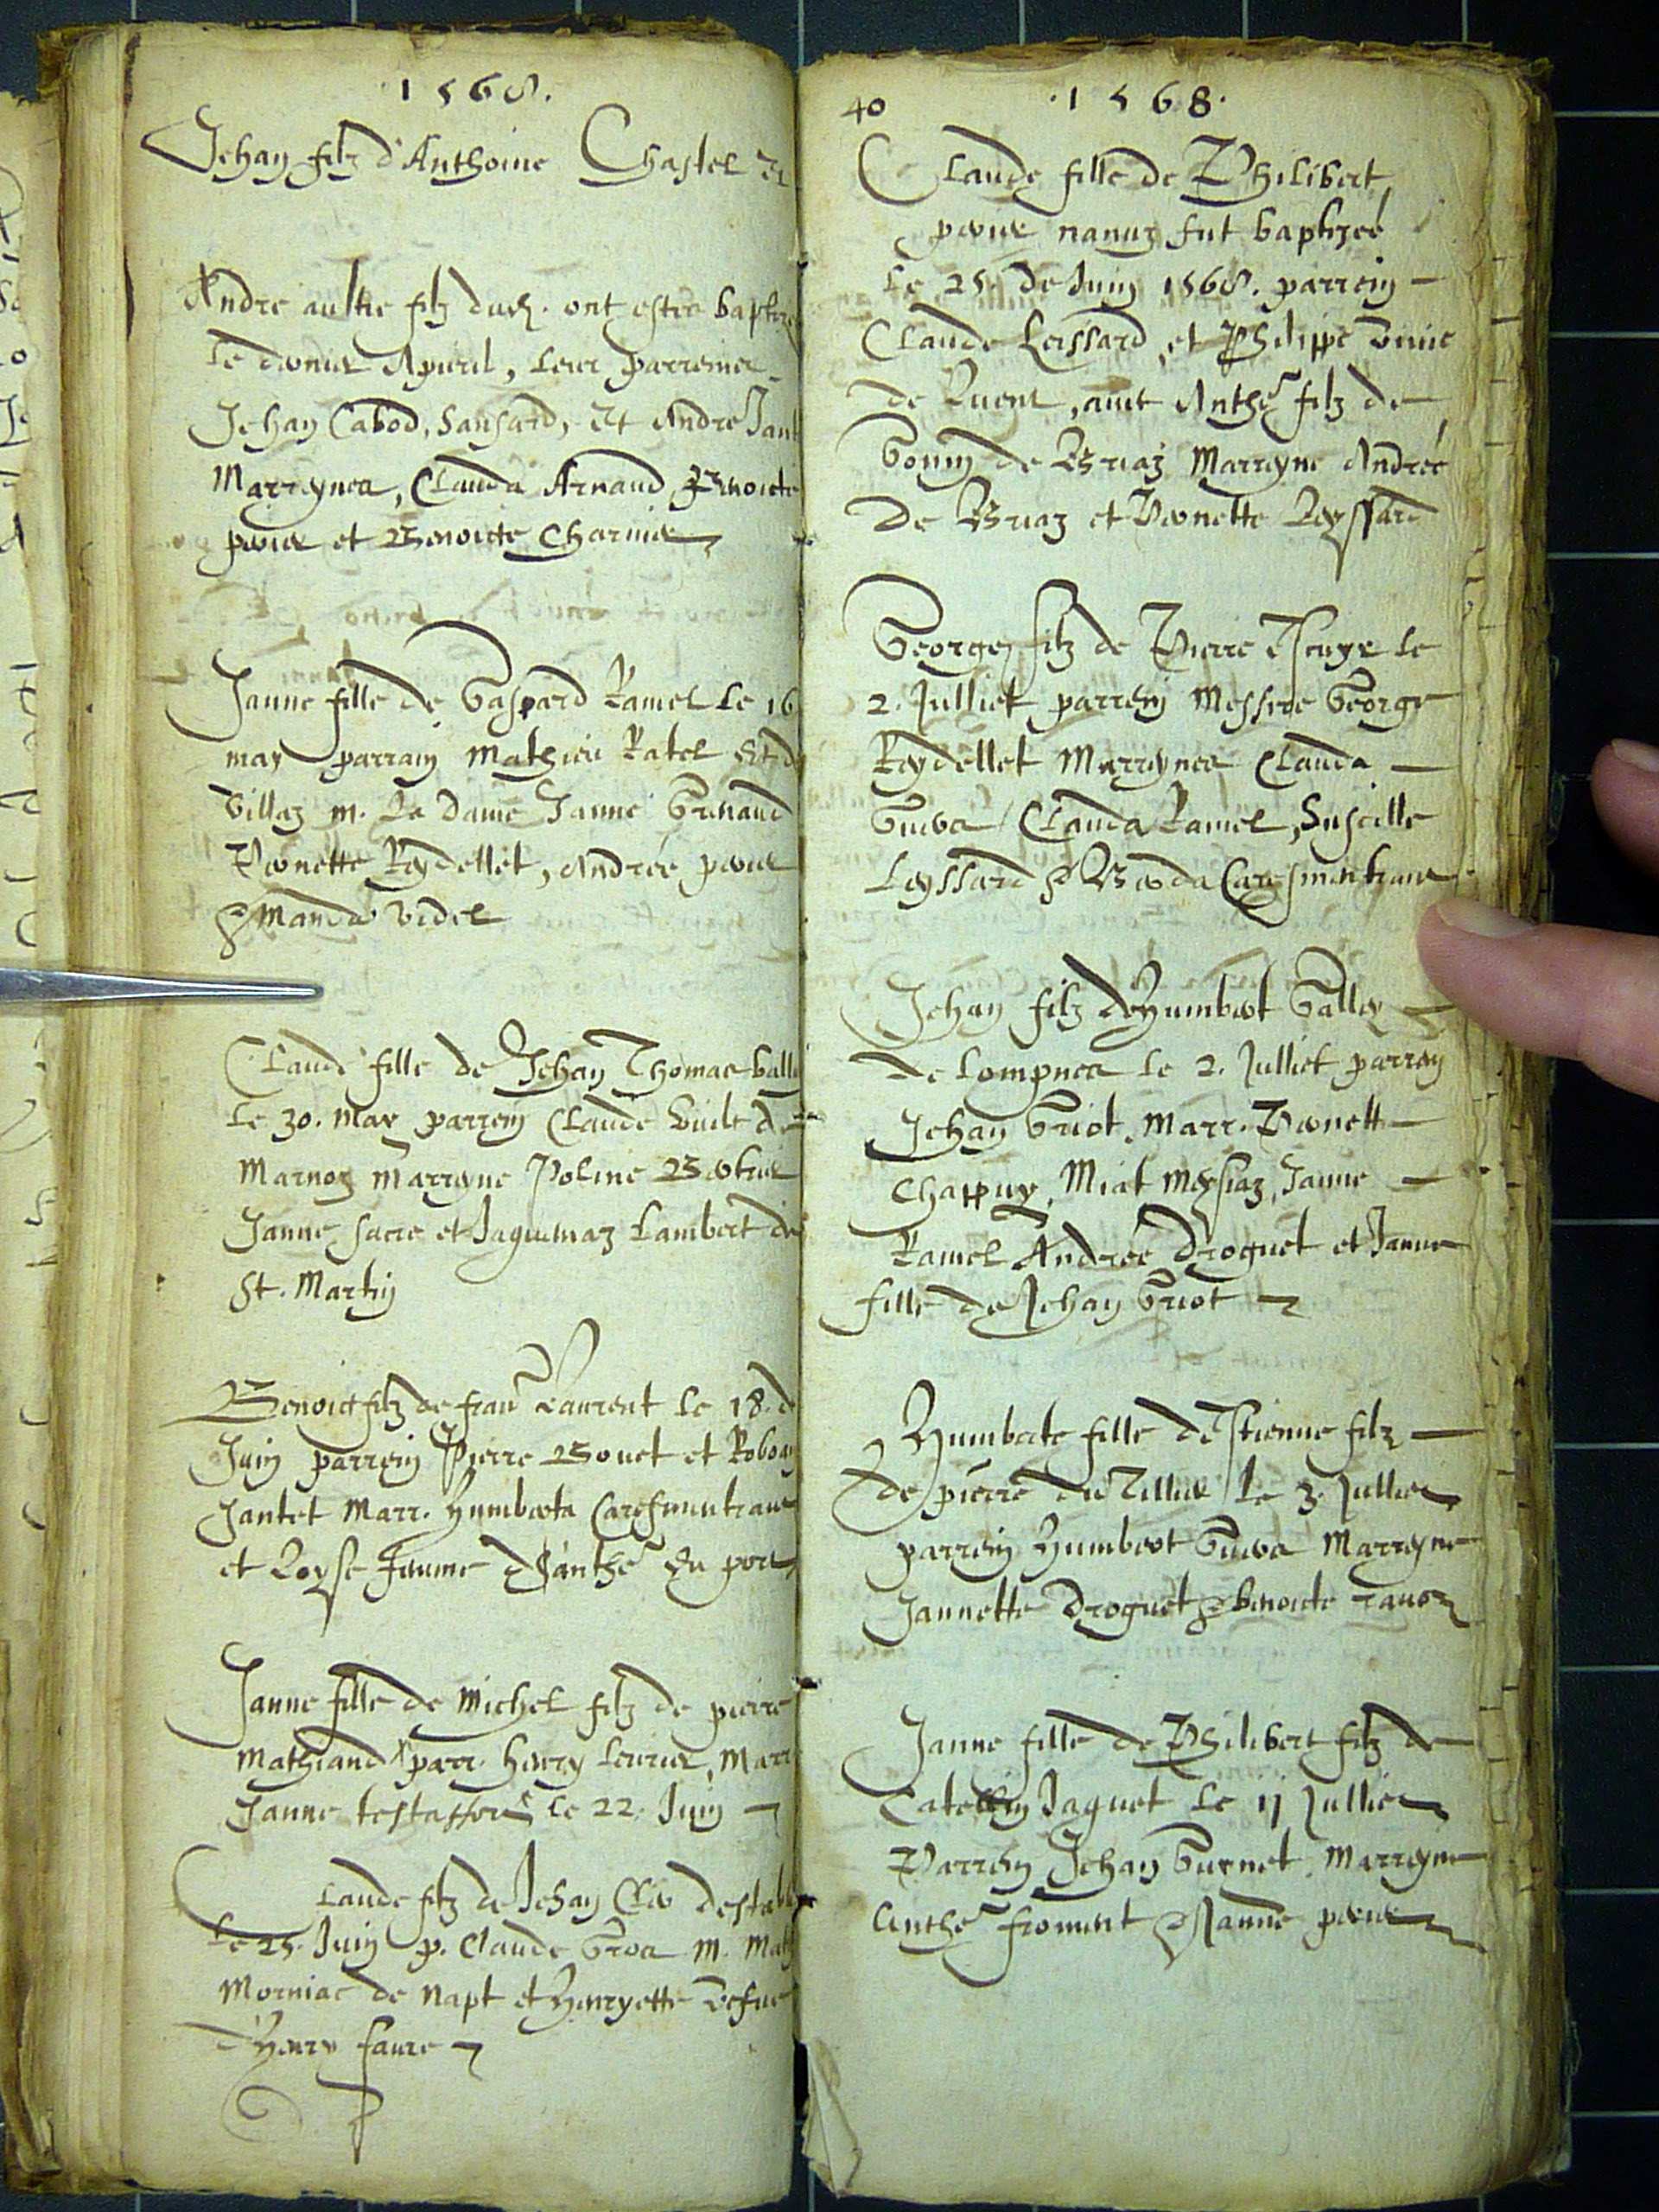 1568.
Jehan filz d'Anthoine Chastel et
Andre aultre filz dud. ont estés baptize
le dernier Apuril, leurs parreins
Jehan Cabod, Sansard, et Andre Jant
Marreynes, Clauda Arnaud, Benoicte
perier et Benoicte Charnier
Janne fille de Gaspard Ramel le 16
may parrain Mathieu Ratel et d
Villaz m. La dame Janne Grinaud
Pernette Reydellet, Andrée perier
& Manda Videl
Claude fille de Jehan Thomas
le 30. may parrein Claude de
Marnoz marreyne Poline Bertrier
Janne sacre et Jaquemaz Lambert de
St. Martin
Benoict filz de Laurent le 18. d
Juin parrein Pierre Bouet et
Jantet Marr. Humberta Caresmentrant
et Loyse d'Anthe du port
Janne fille de Michel filz de pierre
Mathiand parr. Henry, Marr
Janne le 22. Juin
Claude filz de Jehan Cler
le 25. Juin p. Claude Gros M.
Morniac de Napt et Henryette
d'Henry faure
40
1568.
Claude fille de Philibert
perier fut baptizée
le 25. de Juin 1568. parrein
Claude Leissard, et Philippe
de, Anthe filz de
Gonin de Briaz Marreyne Andrée
de Briaz et Pernette Leyssard
George filz de Pierre le
2. Julliet parrein Messire George
Reydellet Marreynes Clauda
Clauda Ramel,
Leyssard & Caresmentrant
Jehan filz d'Humbert Gallex
de Lompnes le 2. Julliet parrein
Jehan Griot, Marr. Pernette
Chappuy, Miat Meysiaz, Janne
Ramel Andrée Droguet et Janne
fille de Jehan Griot
Humberte fille d'Estienne filz
de pierre du Tillier le 3. Julliet
parrein Humbert Marreyne
Jannette Droguet & benoicte
Janne fille de Philibert filz de
Catellin Jaquet le 11 Julliet
Parrein Jehan Guynet, Marreyne
Anthe froment & Janne perier